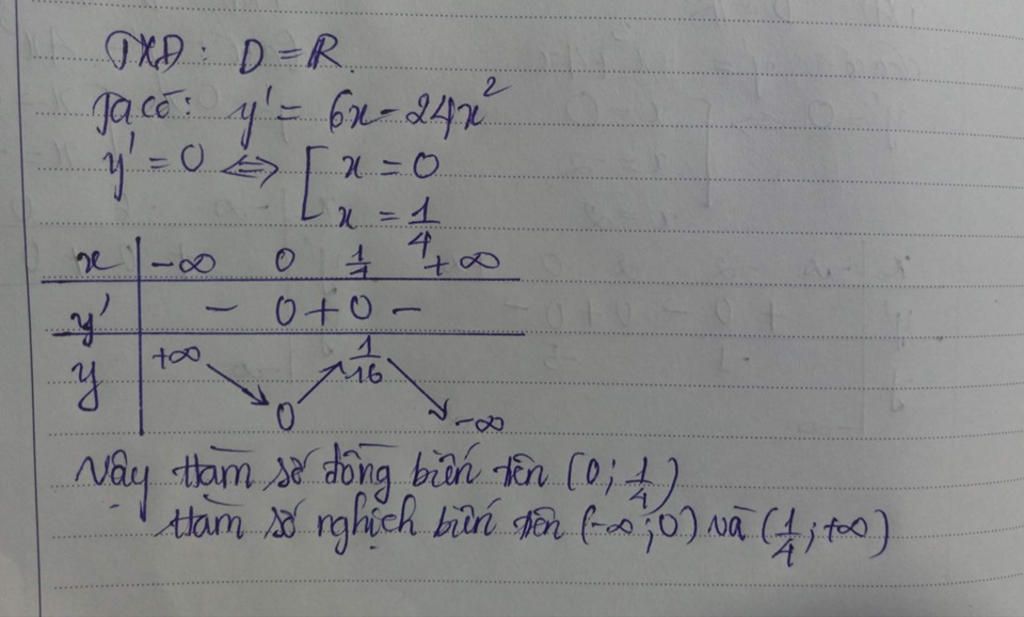 TXD: D = R.
Ta có: y' = 6x - 24x²
y' = 0 ⇔ [ x = 0
x = 1/4
x | -∞ 0 1/4 +∞
y' | - 0 + 0 -
y | +∞ ↘ 0 ↗ 1/16 ↘ -∞
Vậy Hàm số đồng biến trên (0; 1/4)
Hàm số nghịch biến trên (-∞; 0) và (1/4; +∞)